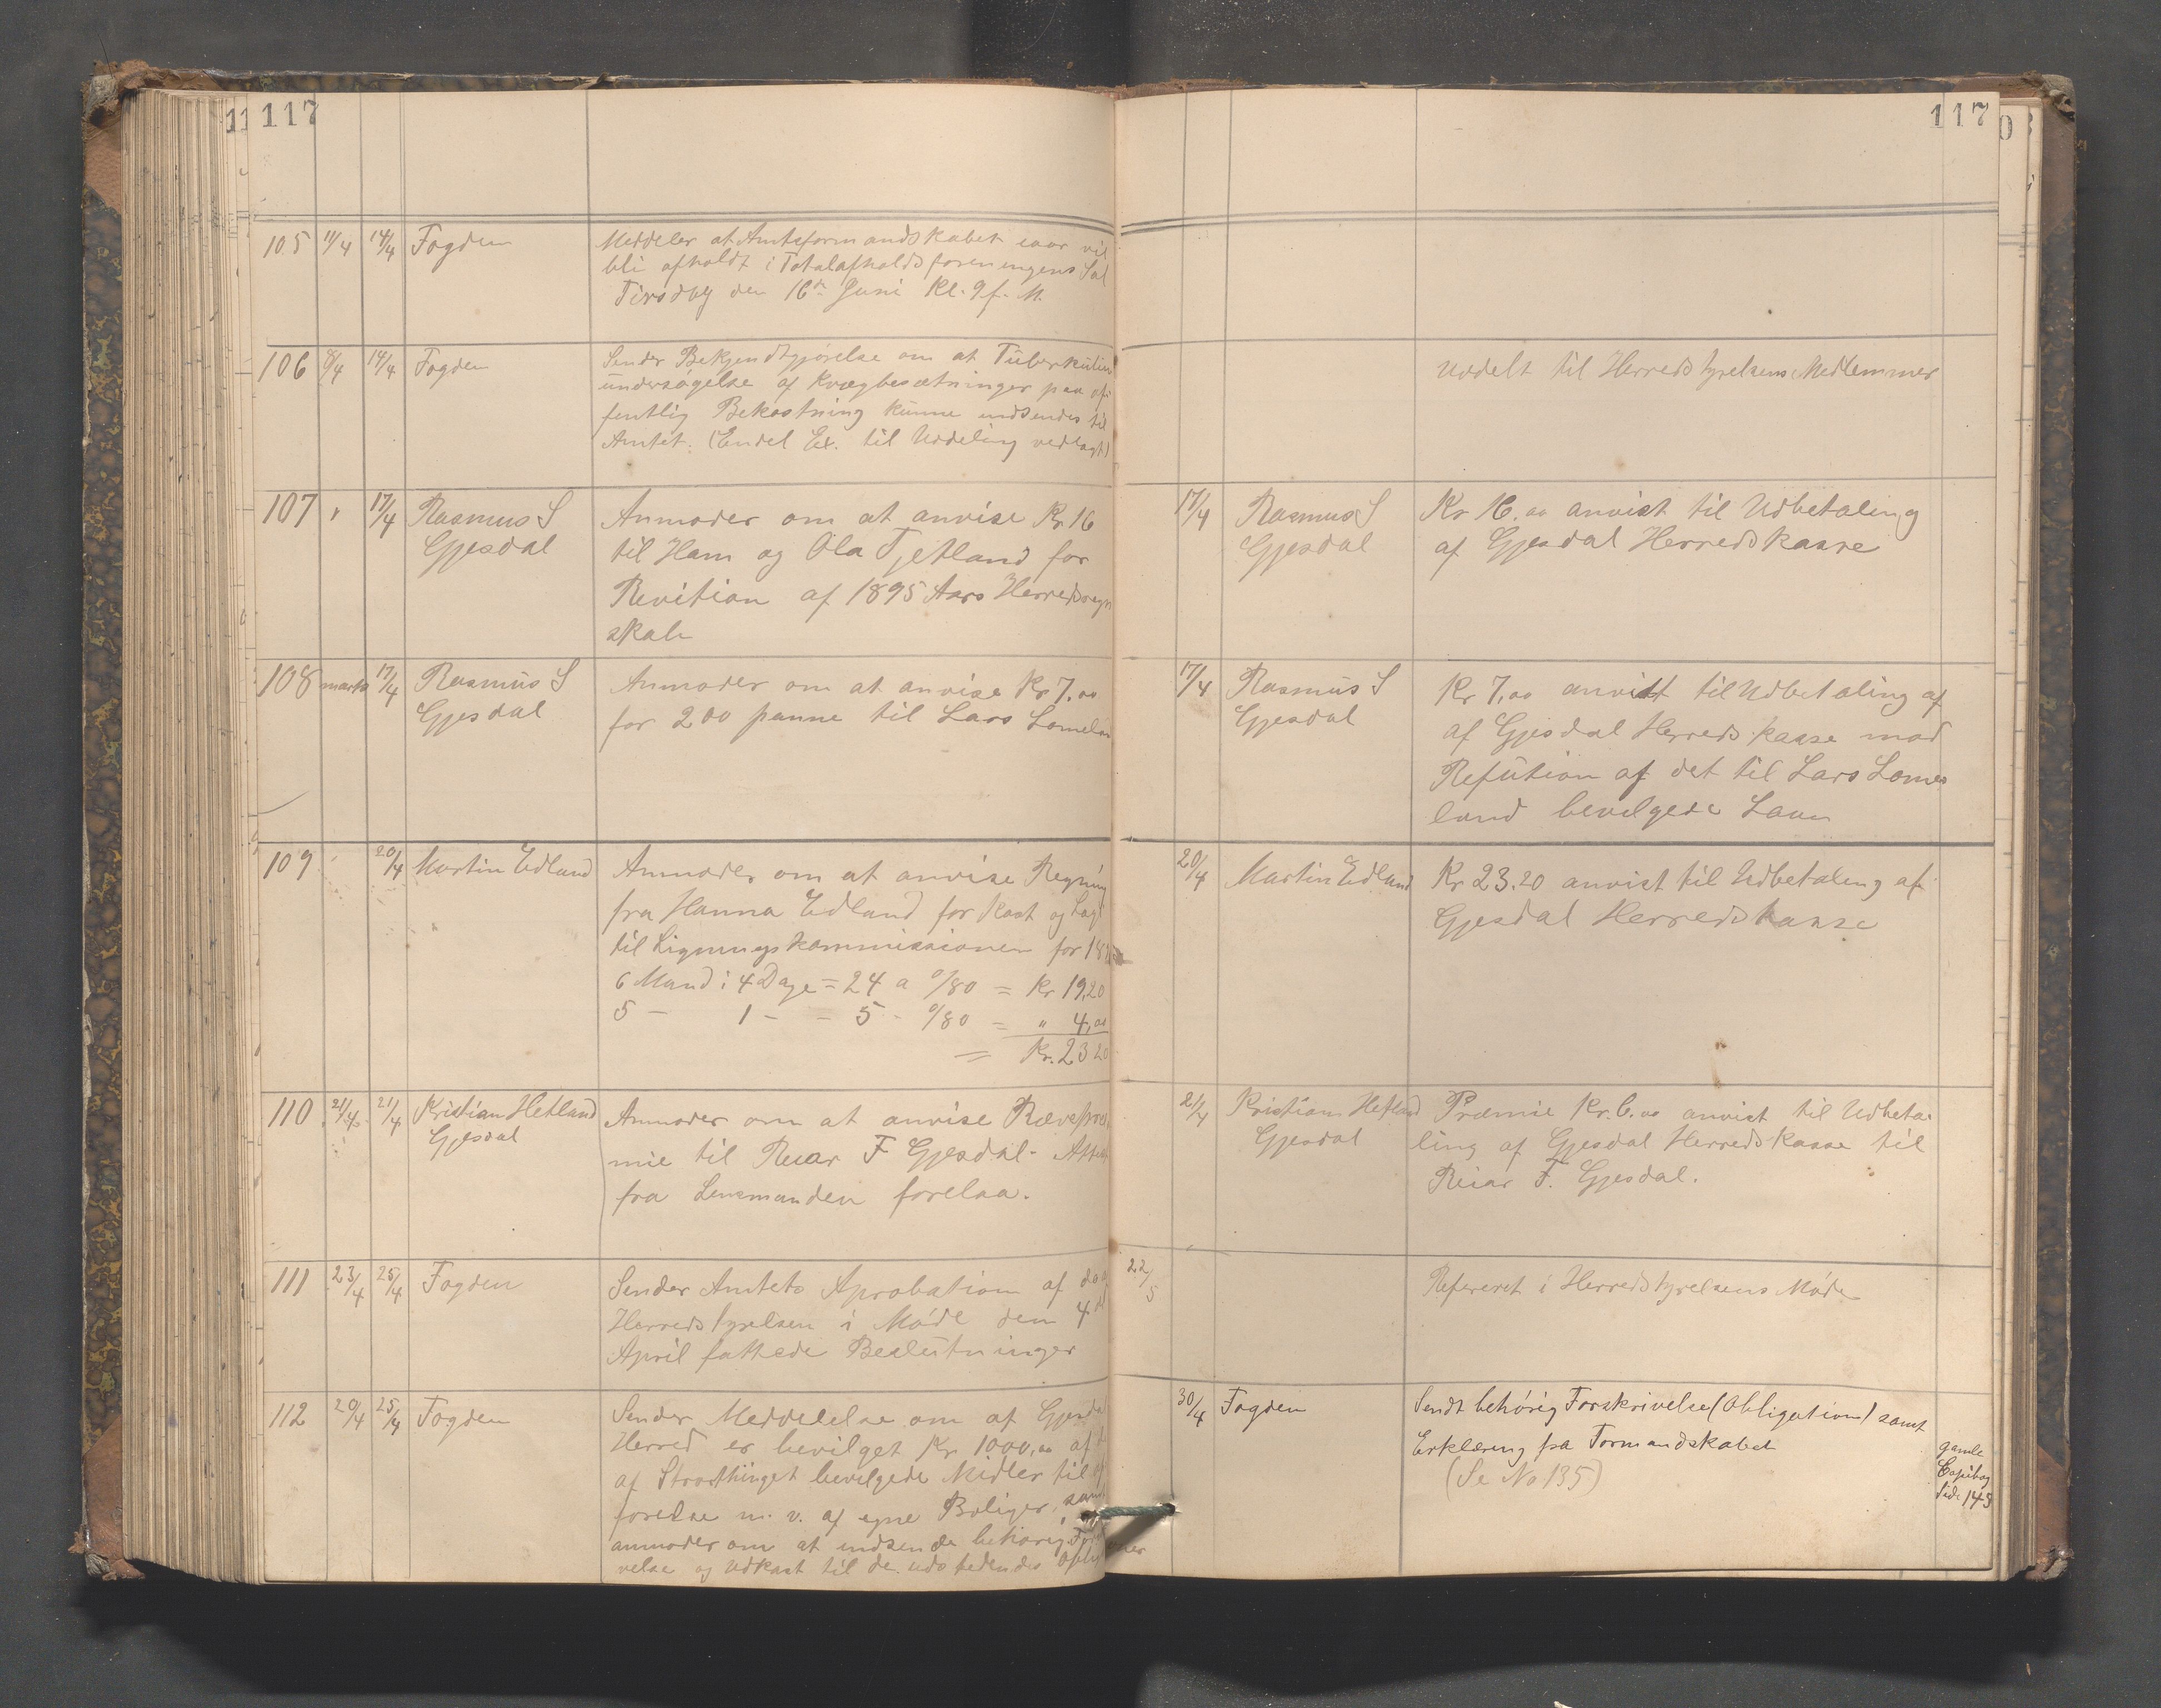 117
105 11/4 14/4 Fogden Meddeler at Amtsformandskabet iaar vil
bli afholdt i Totalafholdsforeningens Sal
Tirsdag den 16de Juni Kl. 9 f. M.
106 8/4 14/4 Fogden Sender Bekjendtgjørelse om at Tüberkülin
ündersøgelse af Kvægbesætninger paa of
fentlig Bekostning künne indsendes til
Amtet. (Endel Ex. til Uddeling vedlagt)
107 " 17/4 Rasmus S Anmoder om at anvise Kr 16
Gjesdal til Ham og Ola Tjetland for
Revition af 1895 Aars Herredsregn
skab
108 marts 17/4 Rasmüs S Anmoder om at anvise Kr 7.00
Gjesdal for 200 panne til Lars Lomeland
109 20/4 Martin Edland Anmoder om at anvise Regning
fra Hanna Edland for Kost og Logi
til Ligningskommissionen for 18
6 Mand i 4 Dage = 24 a 0/80 = Kr 19,20
5 — 1 - - 5 - 0/80 = " 4,00
= Kr. 23 20
110 21/4 21/4 Kristian Hetland Anmoder om at anvise Rævepræ
Gjesdal mie til Reiar F Gjesdal - Attest
fra Lensmanden forelaa.
111 23/4 25/4 Fogden Sender Amtets Aprobation af de af
Herredstyrelsen i Møde den 4de
April fattede Beslütninger
112 20/4 25/4 Fogden Sender Meddelelse om at Gjesdal
Herred er bevilget Kr 1000,00 af
af Storthinget bevilgede Midler til
førelse m. v. af egne Boliger, samt
anmoder om at indsende behørig Forskri
velse og Udkast til de udstedendes
117
Uddelt til Herredstyrelsens Medlemmer
17/4 Rasmus S Kr 16.00 anvist til Udbetaling
Gjesdal af Gjesdal Herredskasse
17/4 Rasmüs S Kr 7,00 anvist til Udbetaling af
Gjesdal af Gjesdal Herredskasse mod
Refütion af det til Lars Lome
land bevilgede Laan
20/4 Martin Edland Kr 23.20 anvist til Udbetaling af
Gjesdal Herredskasse
21/4 Kristian Hetland Præmie Kr. 6.00 anvist til Udbeta
Gjesdal ling af Gjesdal Herredskasse til
Reiar F. Gjesdal.
22/5 Refereret i Herredstyrelsens Møde
30/4 Fogden Sendt behørig Forskrivelse (Obligation) samt
Erklæring fra Formandskabet
(Se No 135)
gamle
Copibog
Side 143